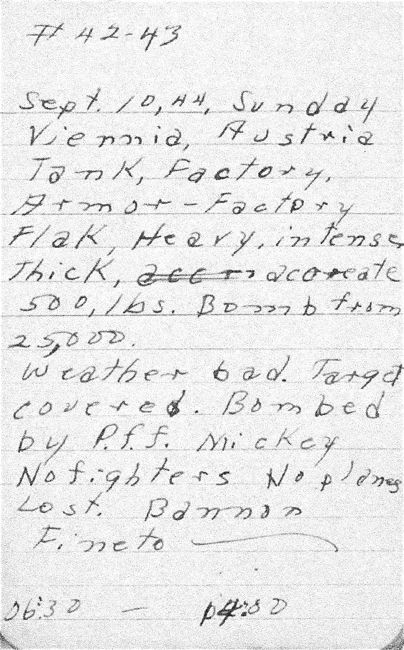 # 42-43
Sept. 10, 44, Sunday
Viennia, Austria
Tank, Factory,
Armor-Factory
Flak, Heavy, intense,
Thick, acoreate
500, lbs. Bomb from
25,000.
Weather bad. Target
covered. Bombed
by P.f.f. Mickey
No fighters No planes
Lost. Bannon
Fineto
06:30 –